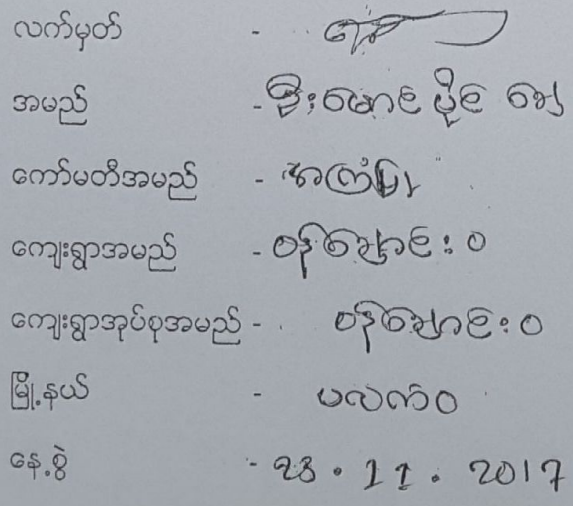 လက်မှတ် -
အမည် - ဦးမောင်ပိုင်သေ
ကော်မတီအမည် - အကြံပြု
ကျေးရွာအမည် - ဝန်ချောင်းဝ
ကျေးရွာအုပ်စုအမည် - ဝန်ချောင်းဝ
မြို့နယ် - ပလက်ဝ
နေ့စွဲ - 23.11.2017